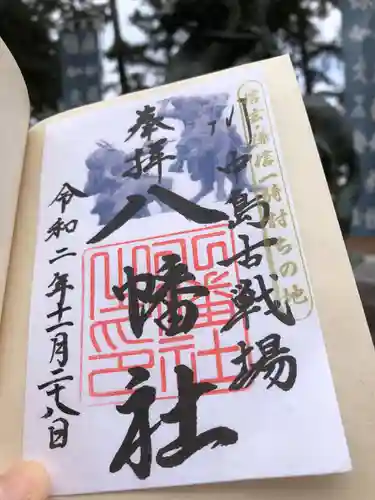 信玄・謙信一騎討ちの地
川中島古戦場
奉拝
八幡社
令和二年十一月二十八日